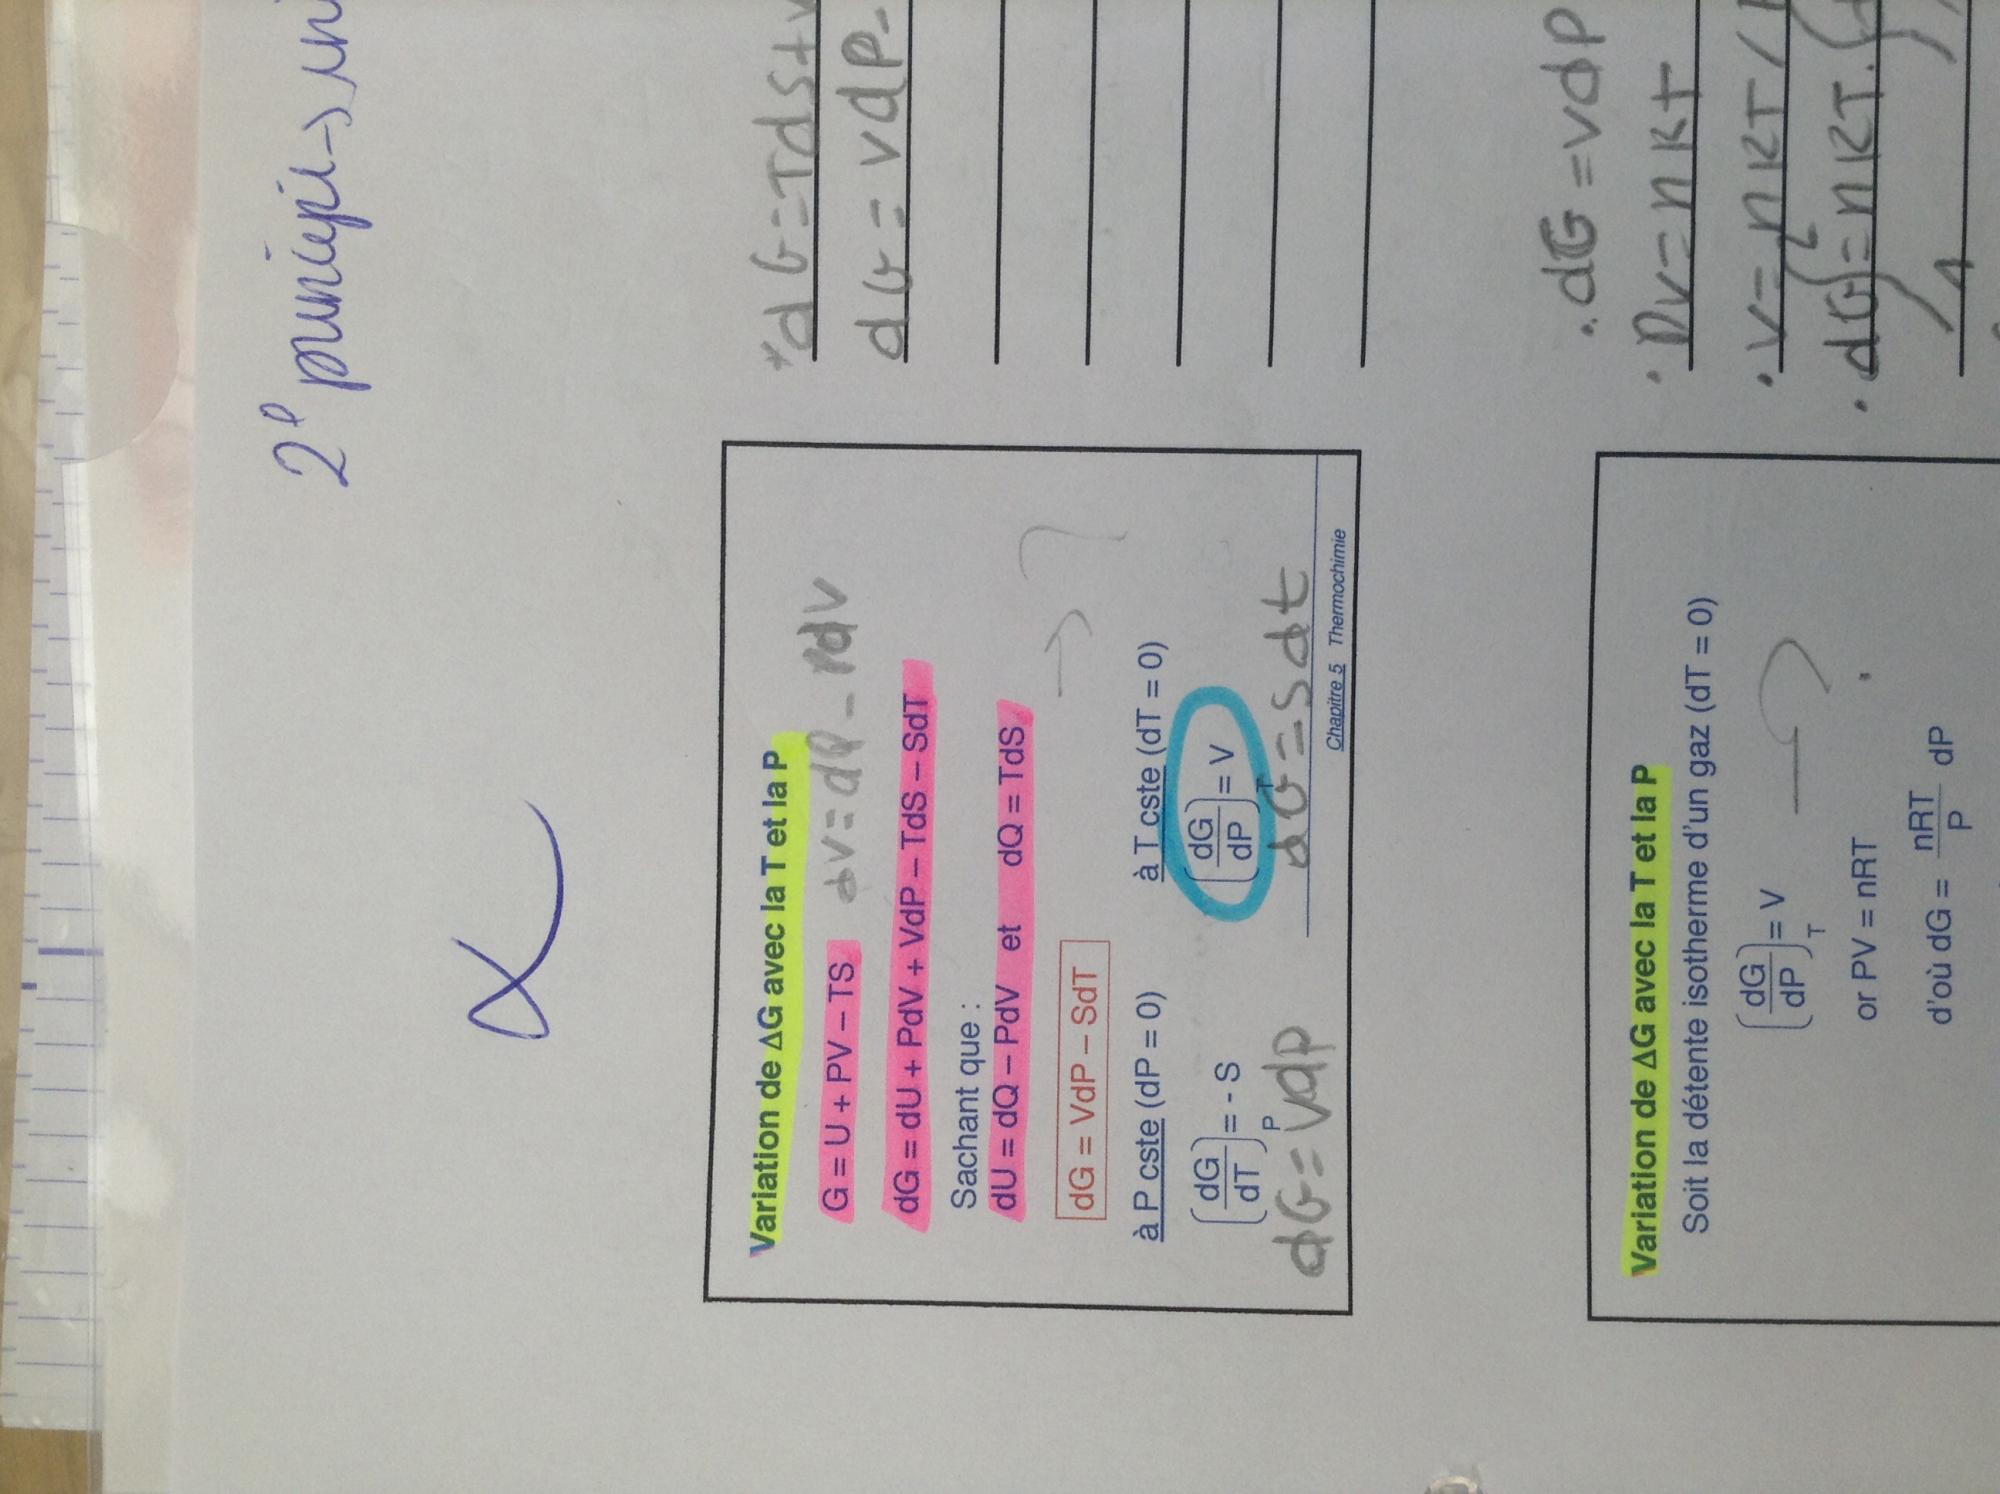 2e principe →
*dG=TdS+V
dG=VdP-
Variation de ΔG avec la T et la P
G = U + PV – TS dv=dP-PdV
dG = dU + PdV + VdP – TdS – SdT
Sachant que :
dU = dQ – PdV et dQ = TdS
dG = VdP – SdT → ?
à P cste (dP = 0) à T cste (dT = 0)
(dG/dT)P = - S (dG/dP)T = V
dG=VdP dG=Sdt
Chapitre 5 Thermochimie
.dG=vdP
.Pv=nRT
.v=nRT/
.dG=nRT.
Variation de ΔG avec la T et la P
Soit la détente isotherme d'un gaz (dT = 0)
(dG/dP)T = V → ?
or PV = nRT
d'où dG = nRT/P dP